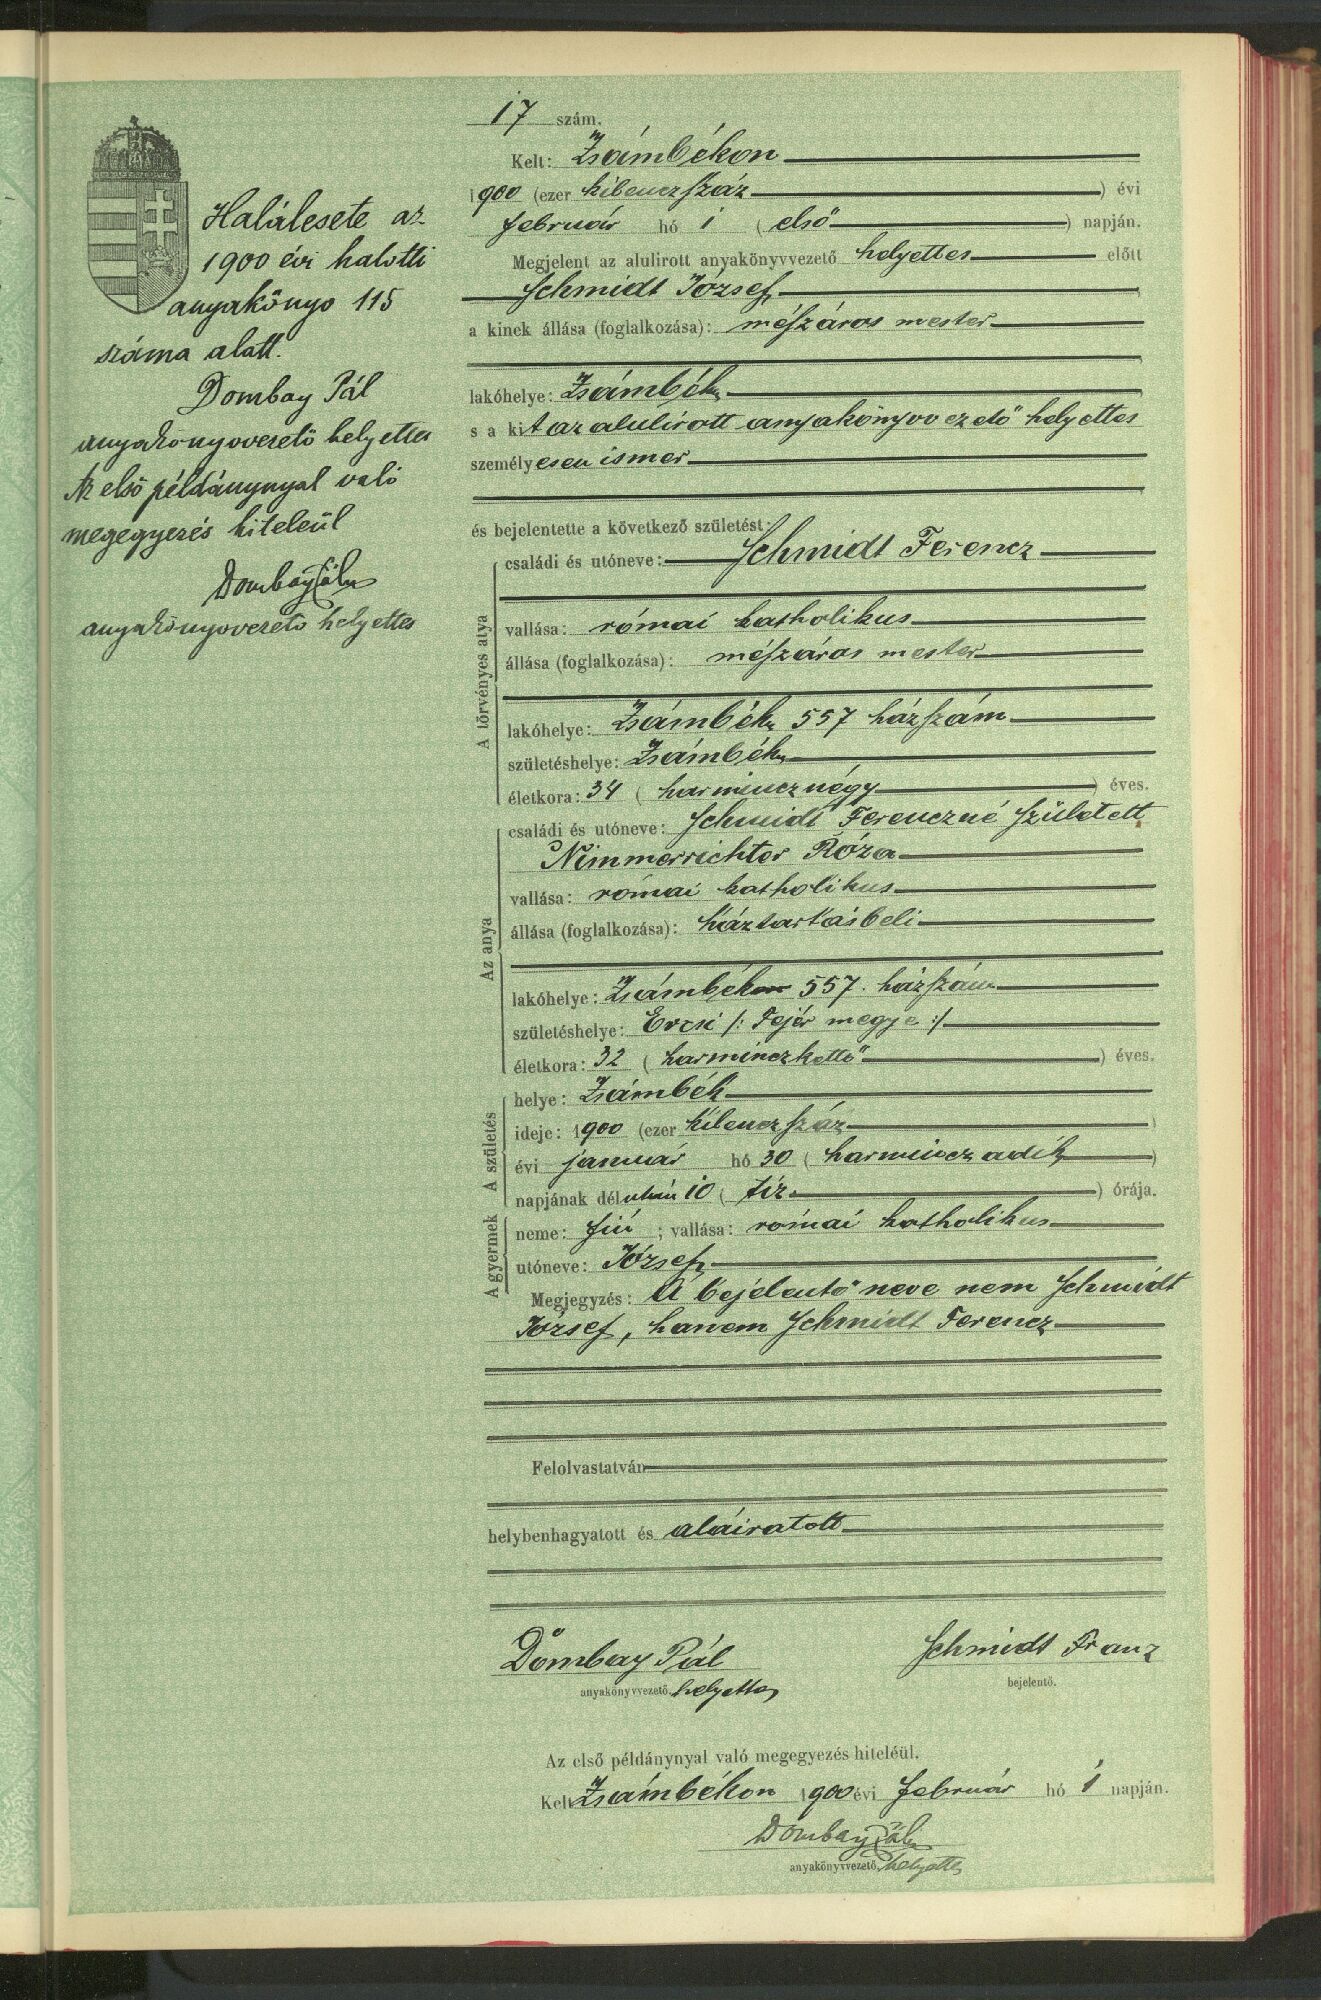 Halálesete az
1900 évi halotti
anyakönyv 115
száma alatt.
Dombay Pál
anyakönyvvezető helyettes
Az első példánynyal való
megegyezés hiteleül
Dombay Pál
anyakönyvvezető helyettes
17 szám.
Kelt: Zsámbékon
1900 (ezer kilenczszáz ) évi
február hó 1 ( első ) napján.
Megjelent az alulirott anyakönyvvezető helyettes előtt
Schmidt József
a kinek állása (foglalkozása): mészáros mester
lakóhelye: Zsámbék
s a kit az alulírott anyakönyvvezető helyettes
személyesen ismer
és bejelentette a következő születést:
A törvényes atya
családi és utóneve: Schmidt Ferencz
vallása: római katholikus
állása (foglalkozása): mészáros mester
lakóhelye: Zsámbék 557 házszám
születéshelye: Zsámbék
életkora: 34 ( harmincznégy ) éves.
Az anya
családi és utóneve: Schmidt Ferenczné született
Nimmerrichter Róza
vallása: római katholikus
állása (foglalkozása): háztartásbeli
lakóhelye: Zsámbékon 557. házszám
születéshelye: Ercsi /: Fejér megye :/
életkora: 32 ( harminczkettő ) éves.
A születés
helye: Zsámbék
ideje: 1900 (ezer kilenczszáz )
évi január hó 30 ( harminczadik )
napjának délután 10 ( tíz ) órája.
A gyermek
neme: fiú ; vallása: római katholikus
utóneve: József
Megjegyzés: A bejelentő neve nem Schmidt
József, hanem Schmidt Ferencz
Felolvastatván
helybenhagyatott és aláiratott
Dombay Pál Schmidt Franz
anyakönyvvezető. helyettes bejelentő.
Az első példánynyal való megegyezés hiteléül.
Kelt Zsámbékon 1900 évi február hó 1 napján.
Dombay Pál
anyakönyvvezető. helyettes